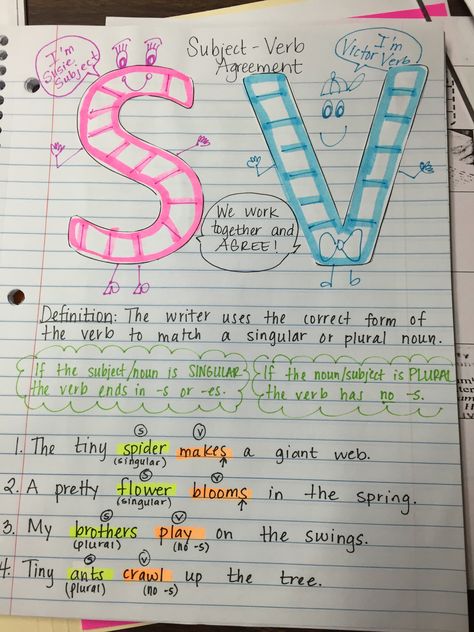 Subject-Verb
Agreement
I'm
Susie
Subject
I'm
Victor Verb
We work
together and
AGREE!
Definition: The writer uses the correct form of
the verb to match a singular or plural noun.
If the subject/noun is SINGULAR
the verb ends in -s or -es.
If the noun/subject is PLURAL
the verb has no -s.
S V
1. The tiny spider makes a giant web.
(singular)
S V
2. A pretty flower blooms in the spring.
(singular)
S V
3. My brothers play on the swings.
(plural) (no -s)
S V
4. Tiny ants crawl up the tree.
(plural) (no -s)